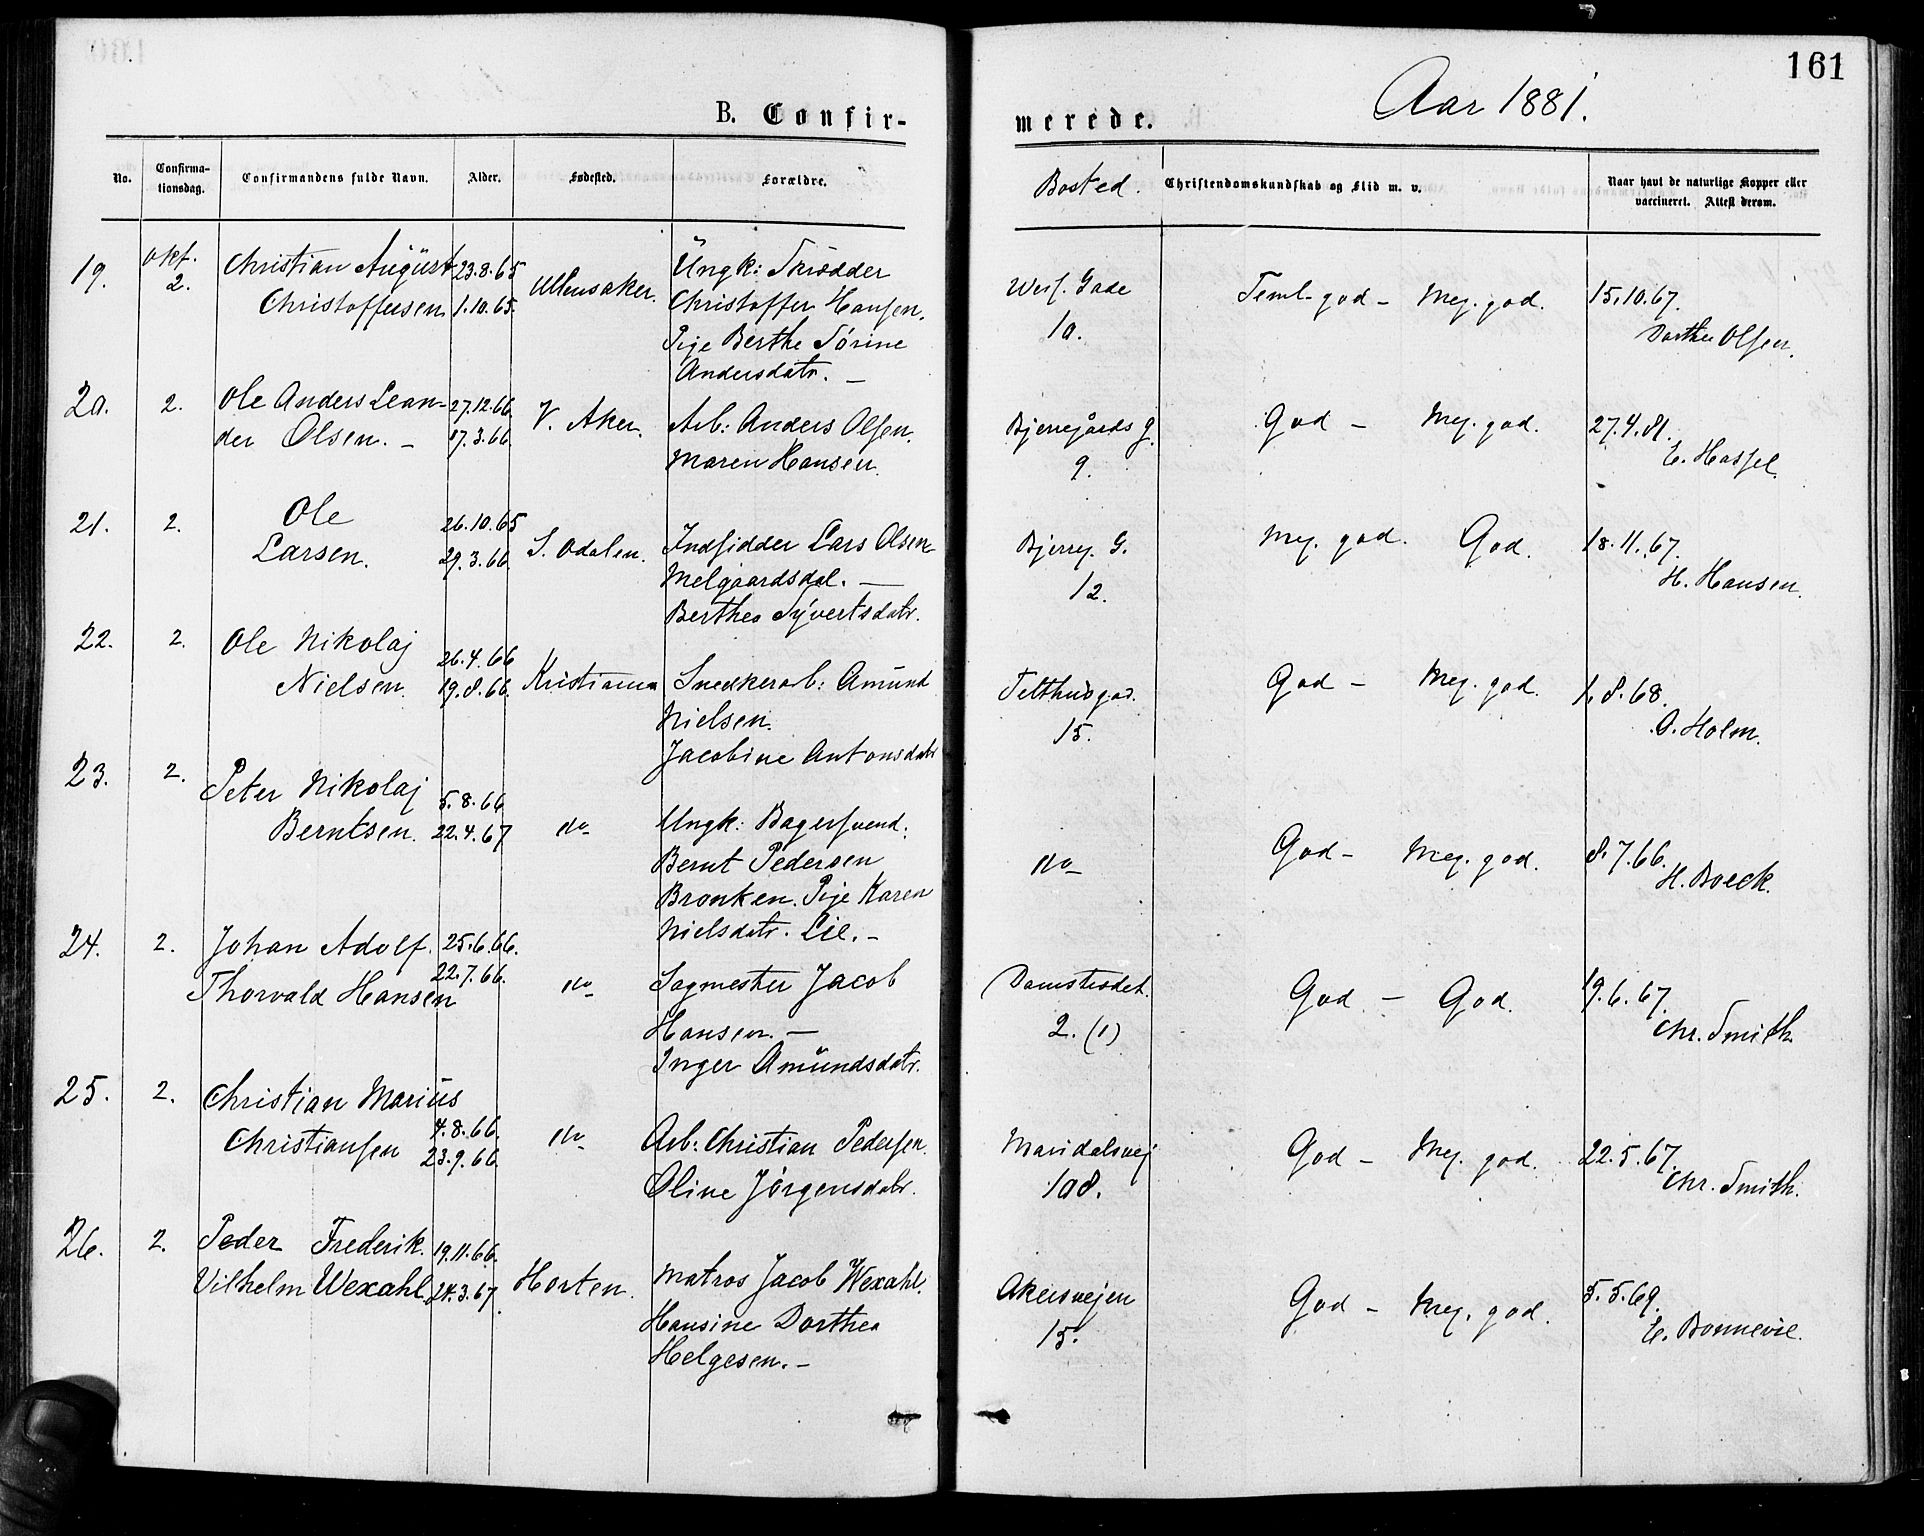 161
Aar 1881.
B. Confir-
merede.
No.
Confirma-
tionsdag.
Confirmandens fulde Navn.
Alder.
Fødested.
Forældre.
Bosted.
Christendomskundskab og Flid m. v.
Naar havt de naturlige Kopper eller
vaccineret. Attest derom.
19. Okt. 2. Christian August 23.8.65 Ullensaker. Ungk: Skrædder
Christoffersen 1.10.65. Christoffer Hansen.
Pige Berthe Sörine
Andersdatr. —
Gade
10.
Teml. god - Meg. god. 15.10.67.
Dorthea Olsen.
20. 2. Ole Anders Lean- 27.12.66. V. Aker. Arb: Anders Olsen.
der Olsen. - 17.3.66. Maren Hansen.
Bjerregårds g.
9.
God - Meg. god. 27.4.81.
E. Hassel.
21. 2. Ole 26.10.65 S. Odalen. Indsidder Lars Olsen
Larsen. 29.3.66. Melgaardsdal. —
Berthea Syvertsdatr.
Bjerreg. G.
12.
Meg. god. God. 18.11.67.
H. Hansen.
22. 2. Ole Nikolaj 26.4.66 Kristiania Snedkerarb: Amund
Nielsen. 19.8.66. Nielsen.
Jacobine Antonsdatr
Telthusgad.
15.
God - Meg. god. 1.8.68.
O. Holm.
23. 2. Peter Nikolaj 5.8.66 do Ungk: Bagersvend.
Berntsen. 22.4.67 Bernt Pedersen
Bronken. Pige Karen
Nielsdatr. Lie. -
do
God - Meg. god. 8.7.66.
H. Boeck.
24. 2. Johan Adolf 25.6.66. do Sagmester Jacob
Thorvald Hansen 22.7.66. Hansen. —
Inger Amundsdatr.
Damstrædet.
2. (1)
God - God. 19.6.67.
Chr. Smith
25. 2. Christian Marius
Christiansen 4.8.66. do Arb: Christian Pedersen.
23.9.66. Oline Jörgensdatr.
Maridalsvej
108.
God - Meg. god. 22.5.67.
Chr. Smith.
26. 2. Peder Frederik 19.11.66. Horten. Matros Jacob Wexahl.
Vilhelm Wexahl. 24.3.67. Hansine Dorthea
Helgesen. -
Akersvejen
15.
God - Meg. god. 5.5.69.
E. Bonnevie.